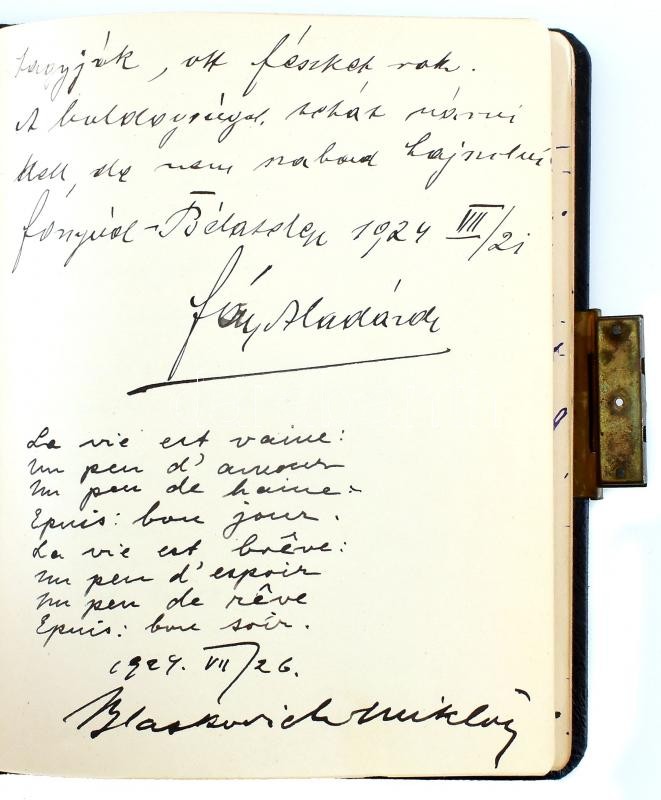 hagyják, ott fészket rak.
A boldogságot tehát várni
kell, de nem szabad hajszolni
Fonyód-Bélatelep 1924 VII/21
Fáy Aladárdé
La vie est vaine:
Un peu d'amour
Un peu de haine:
Epuis: bon jour.
La vie est brêve:
Un peu d'espoir
Un peu de rêve
Epuis: bon soir.
1924. VII/26.
Blaskovich Miklós